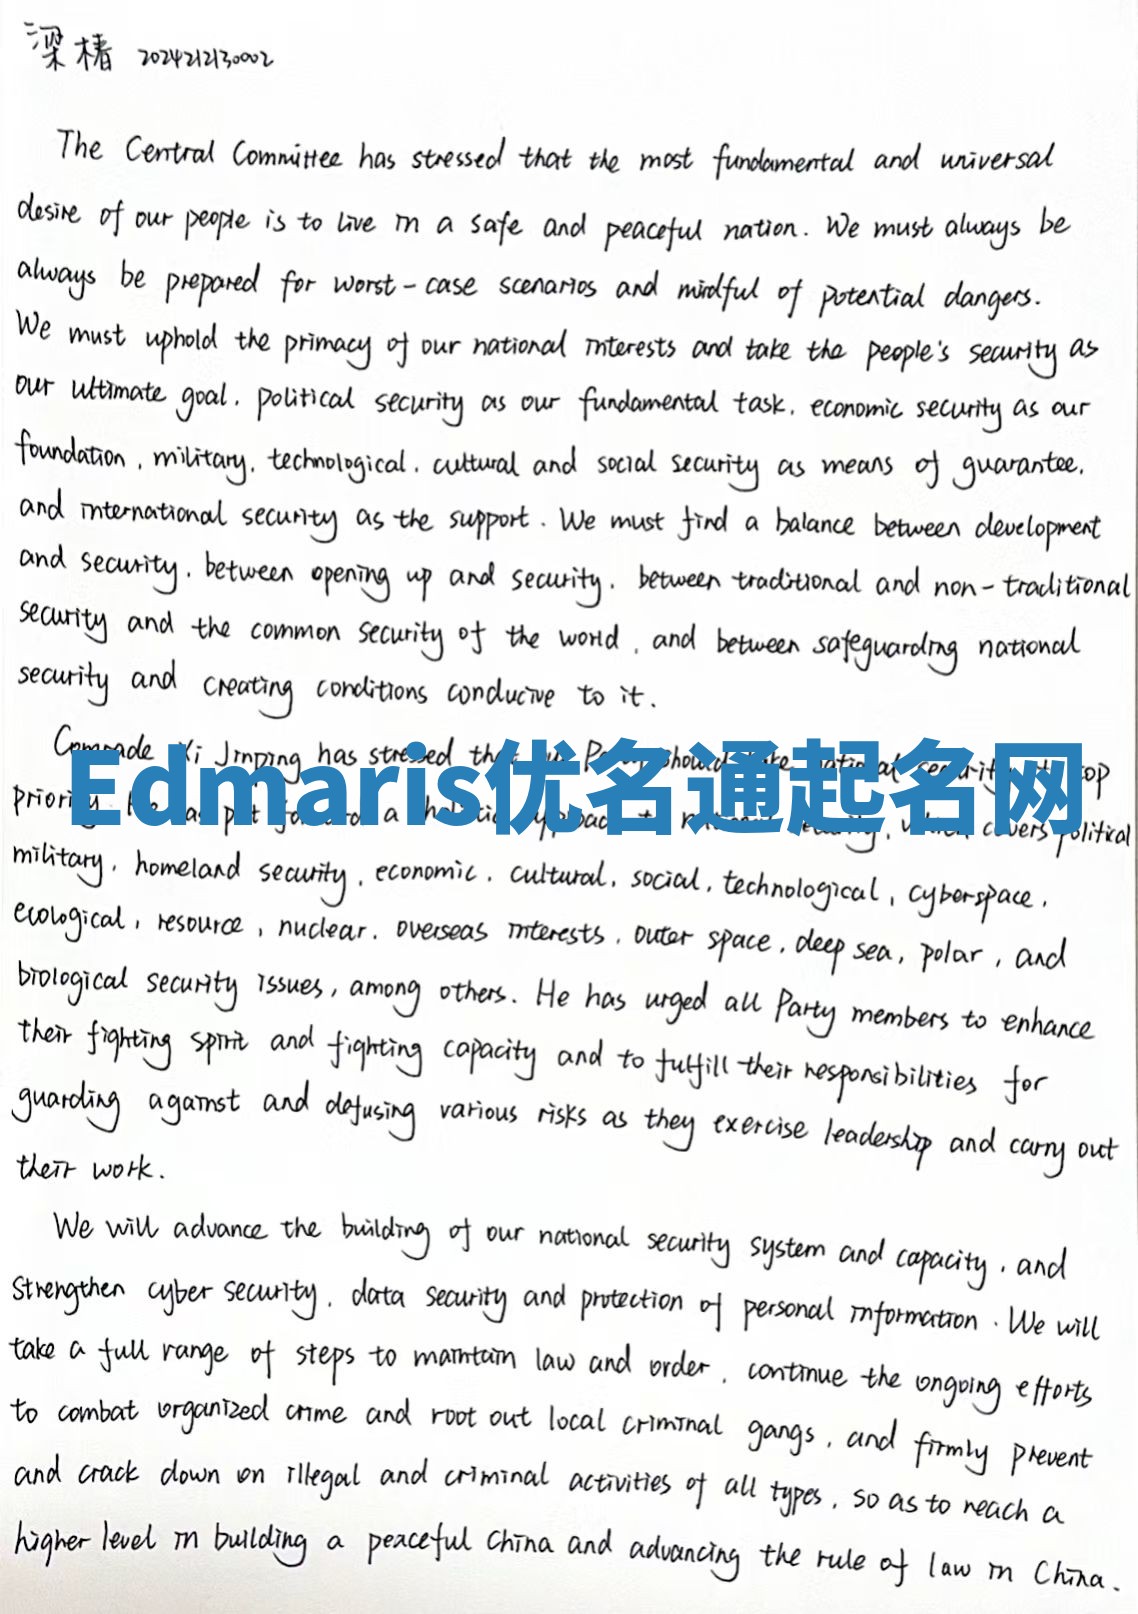 梁楮 2024212130002
The Central Committee has stressed that the most fundamental and universal
desire of our people is to live in a safe and peaceful nation. We must always be
always be prepared for worst-case scenarios and mindful of potential dangers.
We must uphold the primacy of our national interests and take the people's security as
our ultimate goal, political security as our fundamental task, economic security as our
foundation, military, technological, cultural and social security as means of guarantee,
and international security as the support. We must find a balance between development
and security, between opening up and security, between traditional and non-traditional
security and the common security of the world, and between safeguarding national
security and creating conditions conducive to it.
Comrade Xi Jinping has stressed that our Party should take national security as top
Edmaris优名通起名网
priority. He has put forward a holistic approach to national security, which covers political
military, homeland security, economic, cultural, social, technological, cyberspace,
ecological, resource, nuclear, overseas interests, outer space, deep sea, polar, and
biological security issues, among others. He has urged all Party members to enhance
their fighting spirit and fighting capacity and to fulfill their responsibilities for
guarding against and defusing various risks as they exercise leadership and carry out
their work.
We will advance the building of our national security system and capacity, and
strengthen cyber security, data security and protection of personal information. We will
take a full range of steps to maintain law and order, continue the ongoing efforts
to combat organized crime and root out local criminal gangs, and firmly prevent
and crack down on illegal and criminal activities of all types, so as to reach a
higher level in building a peaceful China and advancing the rule of law in China.